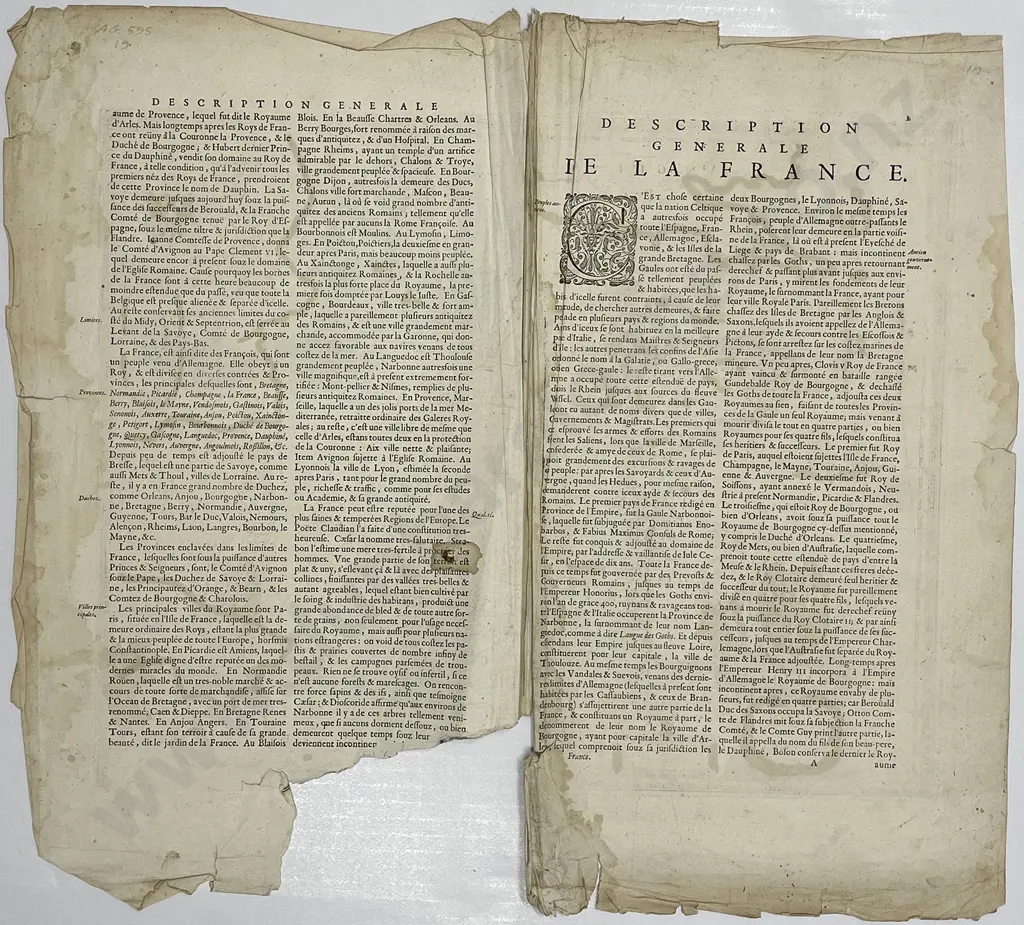 AG 595
19
DESCRIPTION GENERALE
aume de Provence, lequel fut dit le Royaume
d'Arles. Mais longtemps apres les Roys de Fran-
ce ont reüny à la Couronne la Provence, & le
Duché de Bourgogne; & Hubert dernier Prin-
ce du Dauphiné, vendit son domaine au Roy de
France, à telle condition, qu'à l'advenir tous les
premiers néz des Roys de France, prendroient
de cette Province le nom de Dauphin. La Sa-
voye demeure jusques aujourd'huy souz la puis-
sance des successeurs de Berouald, & la Franche
Comté de Bourgogne tenuë par le Roy d'Es-
pagne, souz le mesme tiltre & jurisdiction que la
Flandre. Jeanne Comtesse de Provence, donna
le Comté d'Avignon au Pape Clement VI, le-
quel demeure encor à present souz le domaine
de l'Eglise Romaine. Cause pourquoy les bornes
de la France sont à cette heure beaucoup de
moindre estenduë que du passé, veu que toute la
Belgique est presque alienée & separée d'icelle.
Au reste conservant ses anciennes limites du co-
sté du Midy, Orient & Septentrion, est serrée au
Levant de la Savoye, Comté de Bourgogne,
Lorraine, & des Pays-Bas.
Limites.
La France, est ainsi dite des François, qui sont
un peuple venu d'Allemagne. Elle obeyt à un
Roy, & est divisée en diverses contrées & Pro-
vinces, les principales desquelles sont, Bretagne,
Normandie, Picardie, Champagne, la France, Beausse,
Berry, Blaisois, le Mayne, Vendosmois, Gastinois, Valois,
Senonois, Auxerre, Touraine, Anjou, Poictou, Xaincton-
ge, Perigort, Lymosin, Bourbonnois, Duché de Bourgo-
gne, Quercy, Gascogne, Languedoc, Provence, Dauphiné,
Lyonnois, Nevers, Auvergne, Angoulmois, Rossillon, &c.
Provinces.
Depuis peu de temps est adjousté le pays de
Bresse, lequel est une partie de Savoye, comme
aussi Mets & Thoul, villes de Lorraine. Au re-
ste, il y a en France grand nombre de Duchez,
comme Orleans, Anjou, Bourgogne, Narbon-
ne, Bretagne, Berry, Normandie, Auvergne,
Guyenne, Tours, Bar le Duc, Valois, Nemours,
Alençon, Rheims, Laon, Langres, Bourbon, le
Mayne, &c.
Duchez.
Les Provinces enclavées dans les limites de
France, lesquelles sont sous la puissance d'autres
Princes & Seigneurs, sont, le Comté d'Avignon
souz le Pape, les Duchez de Savoye & Lorrai-
ne, les Principautez d'Orange, & Bearn, & les
Comtez de Bourgogne & Charolois.
Les principales villes du Royaume sont Pa-
ris, située en l'Isle de France, laquelle est la de-
meure ordinaire des Roys, estant la plus grande
& la mieux peuplée de toute l'Europe, horsmis
Constantinople. En Picardie est Amiens, laquel-
le a une Eglise digne d'estre reputée un des mo-
dernes miracles du monde. En Normandie
Roüen, laquelle est un tres-noble marché & ac-
cours de toute sorte de marchandise, assise sur
l'Ocean de Bretagne, avec un port de mer tres-
renommé, Caen & Dieppe. En Bretagne Renes
& Nantes. En Anjou Angers. En Touraine
Tours, estant son terroir à cause de sa grande
beauté, dit le jardin de la France. Au Blaisois
Villes prin-
cipales.
Blois. En la Beausse Chartres & Orleans. Au
Berry Bourges, fort renommée à raison des mar-
ques d'antiquitez, & d'un Hospital. En Cham-
pagne Rheims, ayant un temple d'un artifice
admirable par le dehors, Chalons & Troye,
ville grandement peuplée & spacieuse. En Bour-
gogne Dijon, autresfois la demeure des Ducs,
Chalons ville fort marchande, Mascon, Beau-
ne, Autun, là où se void grand nombre d'anti-
quitez des anciens Romains; tellement qu'elle
est appellée par aucuns la Rome Françoise. Au
Bourbonnois est Moulins. Au Lymosin, Limo-
ges. En Poictou, Poictiers, la deuxiesme en gran-
deur apres Paris, mais beaucoup moins peuplée.
Au Xainctonge, Xainctes, laquelle a aussi plu-
sieurs antiquitez Romaines, & la Rochelle au-
tresfois la plus forte place du Royaume, la pre-
miere fois dompée par Louys le Juste. En Gas-
cogne, Bourdeaux, ville tres-belle & fort am-
ple, laquelle a pareillement plusieurs antiquitez
des Romains, & est une ville grandement mar-
chande, accommodée par la Garonne, qui don-
ne accez favorable aux navires venans de tous
costez de la mer. Au Languedoc est Thoulouse
grandement peuplée, Narbonne autresfois une
ville magnifique, est à present extremement for-
tifiée: Mont-pellier & Nismes, remplies de plu-
sieurs antiquitez Romaines. En Provence, Mar-
seille, laquelle a un des jolis ports de la mer Me-
diterranée, retraitte ordinaire des Galeres Roy-
ales; au reste, c'est une ville libre de mesme que
celle d'Arles, estans toutes deux en la protection
de la Couronne: Aix ville nette & plaisante;
Item Avignon sujette à l'Eglise Romaine. Au
Lyonnois la ville de Lyon, estimée la seconde
apres Paris, tant pour le grand nombre du peu-
ple, richesse & traffic, comme pour ses estudes
ou Academie, & sa grande antiquité.
La France peut estre reputée pour l'une des
plus saines & temperées Regions de l'Europe. Le
Poëte Claudian l'a faite d'une constitution tres-
heureuse. Cæsar la nomme tres-salutaire. Stra-
bon l'estime une mere tres-fertile à procréer des
hommes. Vne grande partie de son terroir est
plat & uny, s'eslevant çà & là avec des plaisantes
collines, finissantes par des vallées tres-belles &
autant agreables, lequel estant bien cultivé par
le soing & industrie des habitans, produict une
grande abondance de bled & de toute autre sor-
te de grains, non seulement pour l'usage neces-
saire du Royaume, mais aussi pour plusieurs na-
tions estrangeres: on void de tous costez les pa-
stis & prairies couvertes de nombre infiny de
bestail, & les campagnes parsemées de trou-
peaux. Rien ne se trouve oysif ou infertil, si ce
n'est aucunes forests & marescages. On rencon-
tre force sapins & des ifs, ainsi que tesmoigne
Cæsar; & Dioscoride affirme qu'aux environs de
Narbonne il y a de ces arbres tellement veni-
meux, que si aucuns dorment dessouz, ou bien
demeurent quelque temps souz leur
deviennent incontinent
Qualité.
19
DESCRIPTION
GENERALE
DE LA FRANCE.
Peuples an-
ciens.
C'EST chose certaine
que la nation Celtique
a autresfois occupé
toute l'Espagne, Fran-
ce, Allemagne, Escla-
vonie, & les Isles de la
grande Bretagne. Les
Gaules ont esté du pas-
sé tellement peuplées
& habitées, que les ha-
bitans d'icelle furent contraints, à cause de leur mul-
titude, de chercher autres demeures, & faire
peade en plusieurs pays & regions du monde.
Ains d'iceux se sont habituez en la meilleure
part d'Italie, se rendans Maistres & Seigneurs
d'Ile: les autres penetrans les confins d'Asie
ont donné le nom à la Galatie, ou Gallo-grece,
ou en Grece-gaule: le reste tirant vers l'Alle-
magne a occupé toute cette estenduë de pays,
depuis le Rhein jusques aux sources du fleuve
Vissel. Ceux qui sont demeurez dans les Gau-
les ont eu autant de noms divers que de villes,
Gouvernements & Magistrats. Les premiers qui
ont esprouvé les armes & efforts des Romains
furent les Saliens, lors que la ville de Marseille,
confederée & amye de ceux de Rome, se plai-
gnoit grandement des excursions & ravages de
ce peuple: par apres les Savoyards & ceux d'Au-
vergne, quand les Hedues, pour mesme raison,
demanderent contre iceux ayde & secours des
Romains. Le premier pays de France redigé en
Province de l'Empire, fut la Gaule Narbonnoi-
se, laquelle fut subjuguée par Domitianus Eno-
barbus, & Fabius Maximus Consuls de Rome;
Le reste fut conquis & adjousté au domaine de
l'Empire, par l'addresse & vaillantise de Jule Ce-
sar, en l'espace de dix ans. Toute la France de-
puis ce temps fut gouvernée par des Prevosts &
Gouverneurs Romains, jusques au temps de
l'Empereur Honorius, lors que les Goths envi-
ron l'an de grace 400, ruynans & ravageans tou-
te l'Espagne & l'Italie occuperent la Province de
Narbonne, la surnommant de leur nom Lan-
guedoc, comme à dire Langue des Goths. Et depuis
estendans leur Empire jusques au fleuve Loire,
constituerent pour leur capitale, la ville de
Thoulouze. Au mesme temps les Bourguignons
avec les Vandales & Suevois, venans des dernie-
res limites d'Allemagne (lesquelles à present sont
habitées par les Cassaubiens, & ceux de Bran-
denbourg) s'assujettirent une autre partie de la
France, & constituans un Royaume à part, le
denommerent de leur nom le Royaume de
Bourgogne, ayant pour capitale la ville d'Ar-
les, lequel comprenoit souz sa jurisdiction les
France.
deux Bourgognes, le Lyonnois, Dauphiné, Sa-
voye & Provence. Environ le mesme temps les
François, peuple d'Allemagne outre-passans le
Rhein, poserent leur demeure en la partie voisi-
ne de la France, là où est à present l'Evesché de
Liege & pays de Brabant: mais incontinent
chassez par les Goths, un peu apres retournant
derechef & passant plus avant jusques aux envi-
rons de Paris, y mirent les fondements de leur
Royaume, le surnommant la France, ayant pour
leur ville Royale Paris. Pareillement les Bretons
chassez des Isles de Bretagne par les Anglois &
Saxons, lesquels ils avoient appellez de l'Allema-
gne à leur ayde & secours contre les Escossois &
Pictons, se sont arrestez sur les costez marines de
la France, appellans de leur nom la Bretagne
mineure. Vn peu apres, Clovis V Roy de France
ayant vaincu & surmonté en bataille rangée
Gundebalde Roy de Bourgogne, & dechassé
les Goths de toute la France, adjousta ces deux
Royaumes au sien, faisant de toutes les Provin-
ces de la Gaule un seul Royaume; mais venant à
mourir divisa le tout en quatre parties, ou bien
Royaumes pour ses quatre fils, lesquels constitua
ses heritiers & successeurs. Le premier fut Roy
de Paris, auquel estoient sujettes l'Isle de France,
Champagne, le Mayne, Touraine, Anjou, Gui-
enne & Auvergne. Le deuxiesme fut Roy de
Soissons, ayant annexé le Vermandois, Neu-
strie à present Normandie, Picardie & Flandres.
Le troisiesme, qui estoit Roy de Bourgogne, ou
bien d'Orleans, avoit souz sa puissance tout le
Royaume de Bourgogne cy-dessus mentionné,
y compris le Duché d'Orleans. Le quatriesme,
Roy de Mets, ou bien d'Austrasie, laquelle com-
prenoit toute cette estenduë de pays d'entre la
Meuse & le Rhein. Depuis estant ces freres déce-
dez, & le Roy Clotaire demeuré seul heritier &
successeur du tout; le Royaume fut pareillement
divisé en quatre pour ses quatre fils, lesquels ve-
nans à mourir le Royaume fut derechef reüny
souz la puissance du Roy Clotaire II; & par ainsi
demeura tout entier souz la puissance de ses suc-
cesseurs, jusques au temps de l'Empereur Char-
lemagne, lors que l'Austrasie fut separée du Roy-
aume & la France adjoustée. Long-temps apres
l'Empereur Henry III incorpora à l'Empire
d'Allemagne le Royaume de Bourgogne: mais
incontinent apres, ce Royaume envahy de plu-
sieurs, fut redigé en quatre parties; car Berouald
Duc des Saxons occupa la Savoye; Otton Com-
te de Flandres mit souz sa subjection la Franche
Comté, & le Comte Guy print l'autre partie, la-
quelle il appella du nom du fils de son beau-pere,
le Dauphiné, Boson conserva le dernier le Roy-
Ancien
gouverne-
ment.
A
aume